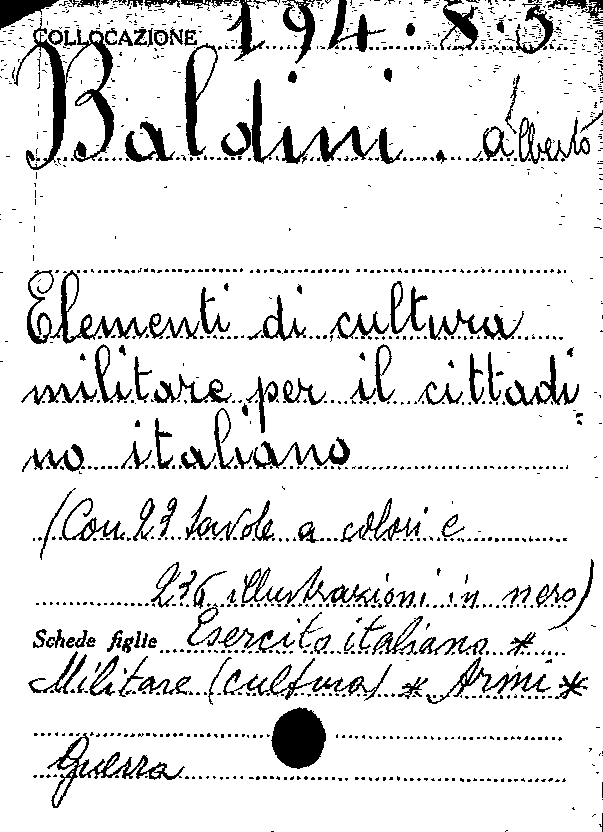 COLLOCAZIONE 194.8.5
Baldini. Alberto
Elementi di cultura
militare per il cittadi=
no italiano
(Con 29 tavole a colori e
236 illustrazioni in nero)
Schede figlie Esercito italiano *
Militare (cultura) * Armi *
Guerra